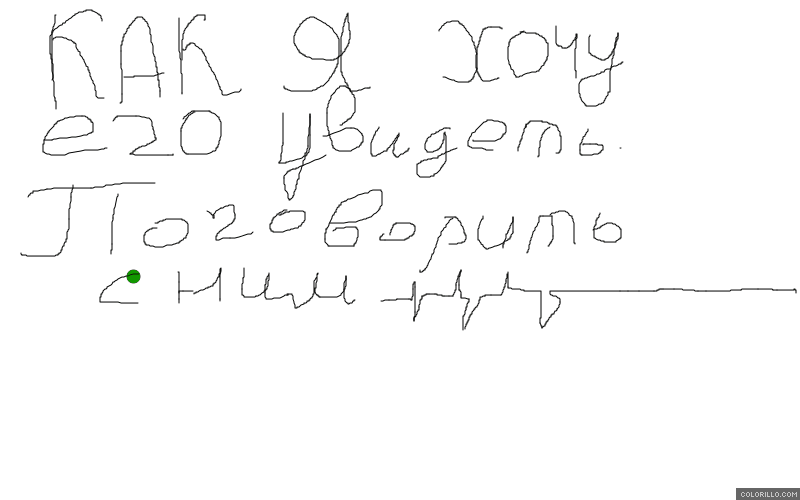 КАК Я хочу
его увидеть.
Поговорить
с ним
COLORILLO.COM